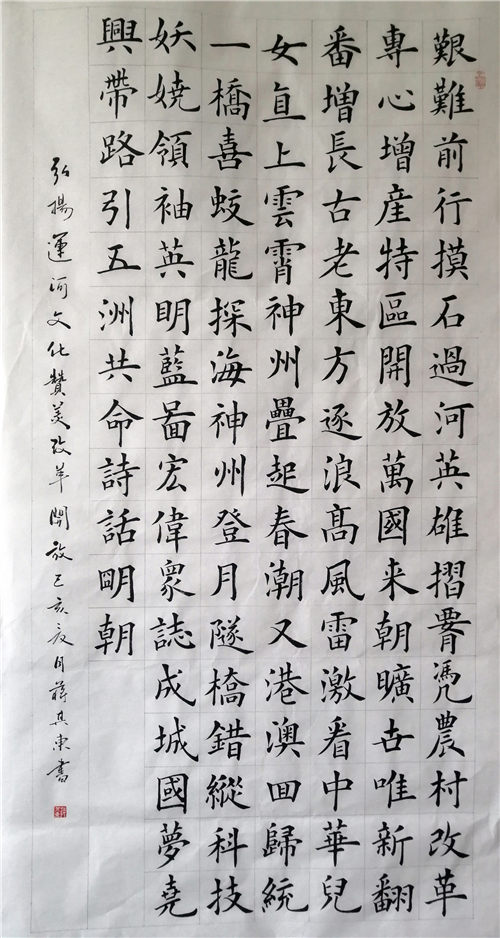 艱難前行摸石過河英雄摺凴農村改革
專心增産特區開放萬國来朝曠卋唯新翻
番増長古老東方逐浪髙風雷激看中華兒
女直上雲霄神州疊起春潮又港澳回歸統
一橋喜蛟龍探海神州登月隧橋錯縱科技
妖嬈領袖英明藍啚宏偉眾誌成城國夢堯
興帶路引五洲共命詩話明朝
弘揚運河文化贊美改革開放己亥月蔣其東書